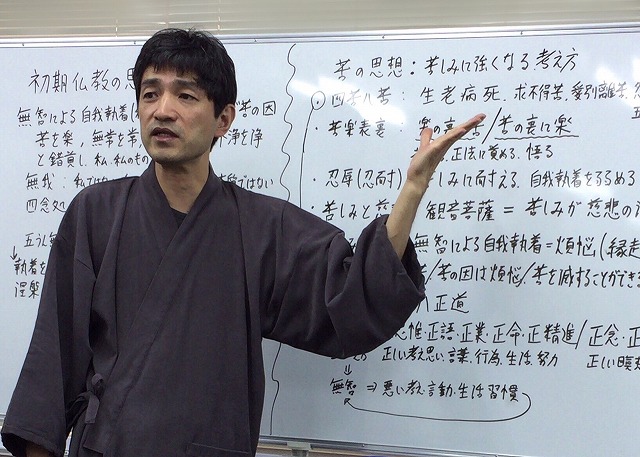 初期仏教の思
無智による自我執着
苦の因
苦を楽、無常を常
不浄を浄
と錯覚し、私、私のもの
無我:私では
ではない
四念処
五うん無
↓執着を
涅槃
苦の思想:苦しみに強くなる考え方
・四苦八苦:生老病死、求不得苦、愛別離苦、
・苦楽表裏:楽の裏に苦/苦の裏に楽
正法に覚める、悟る
・忍辱(忍耐):苦しみに耐える、自我執着を弱める
・苦しみと慈
観音菩薩=苦しみが慈悲の
無智による自我執着=煩悩(縁起
苦の因は煩悩/苦を滅することができ
八正道
惟・正語・正業・正命・正精進/正念・正
正しい考え思い、言葉、行為、生活、努力 正しい瞑想
↓
無智⇒悪い考え・言動・生活習慣